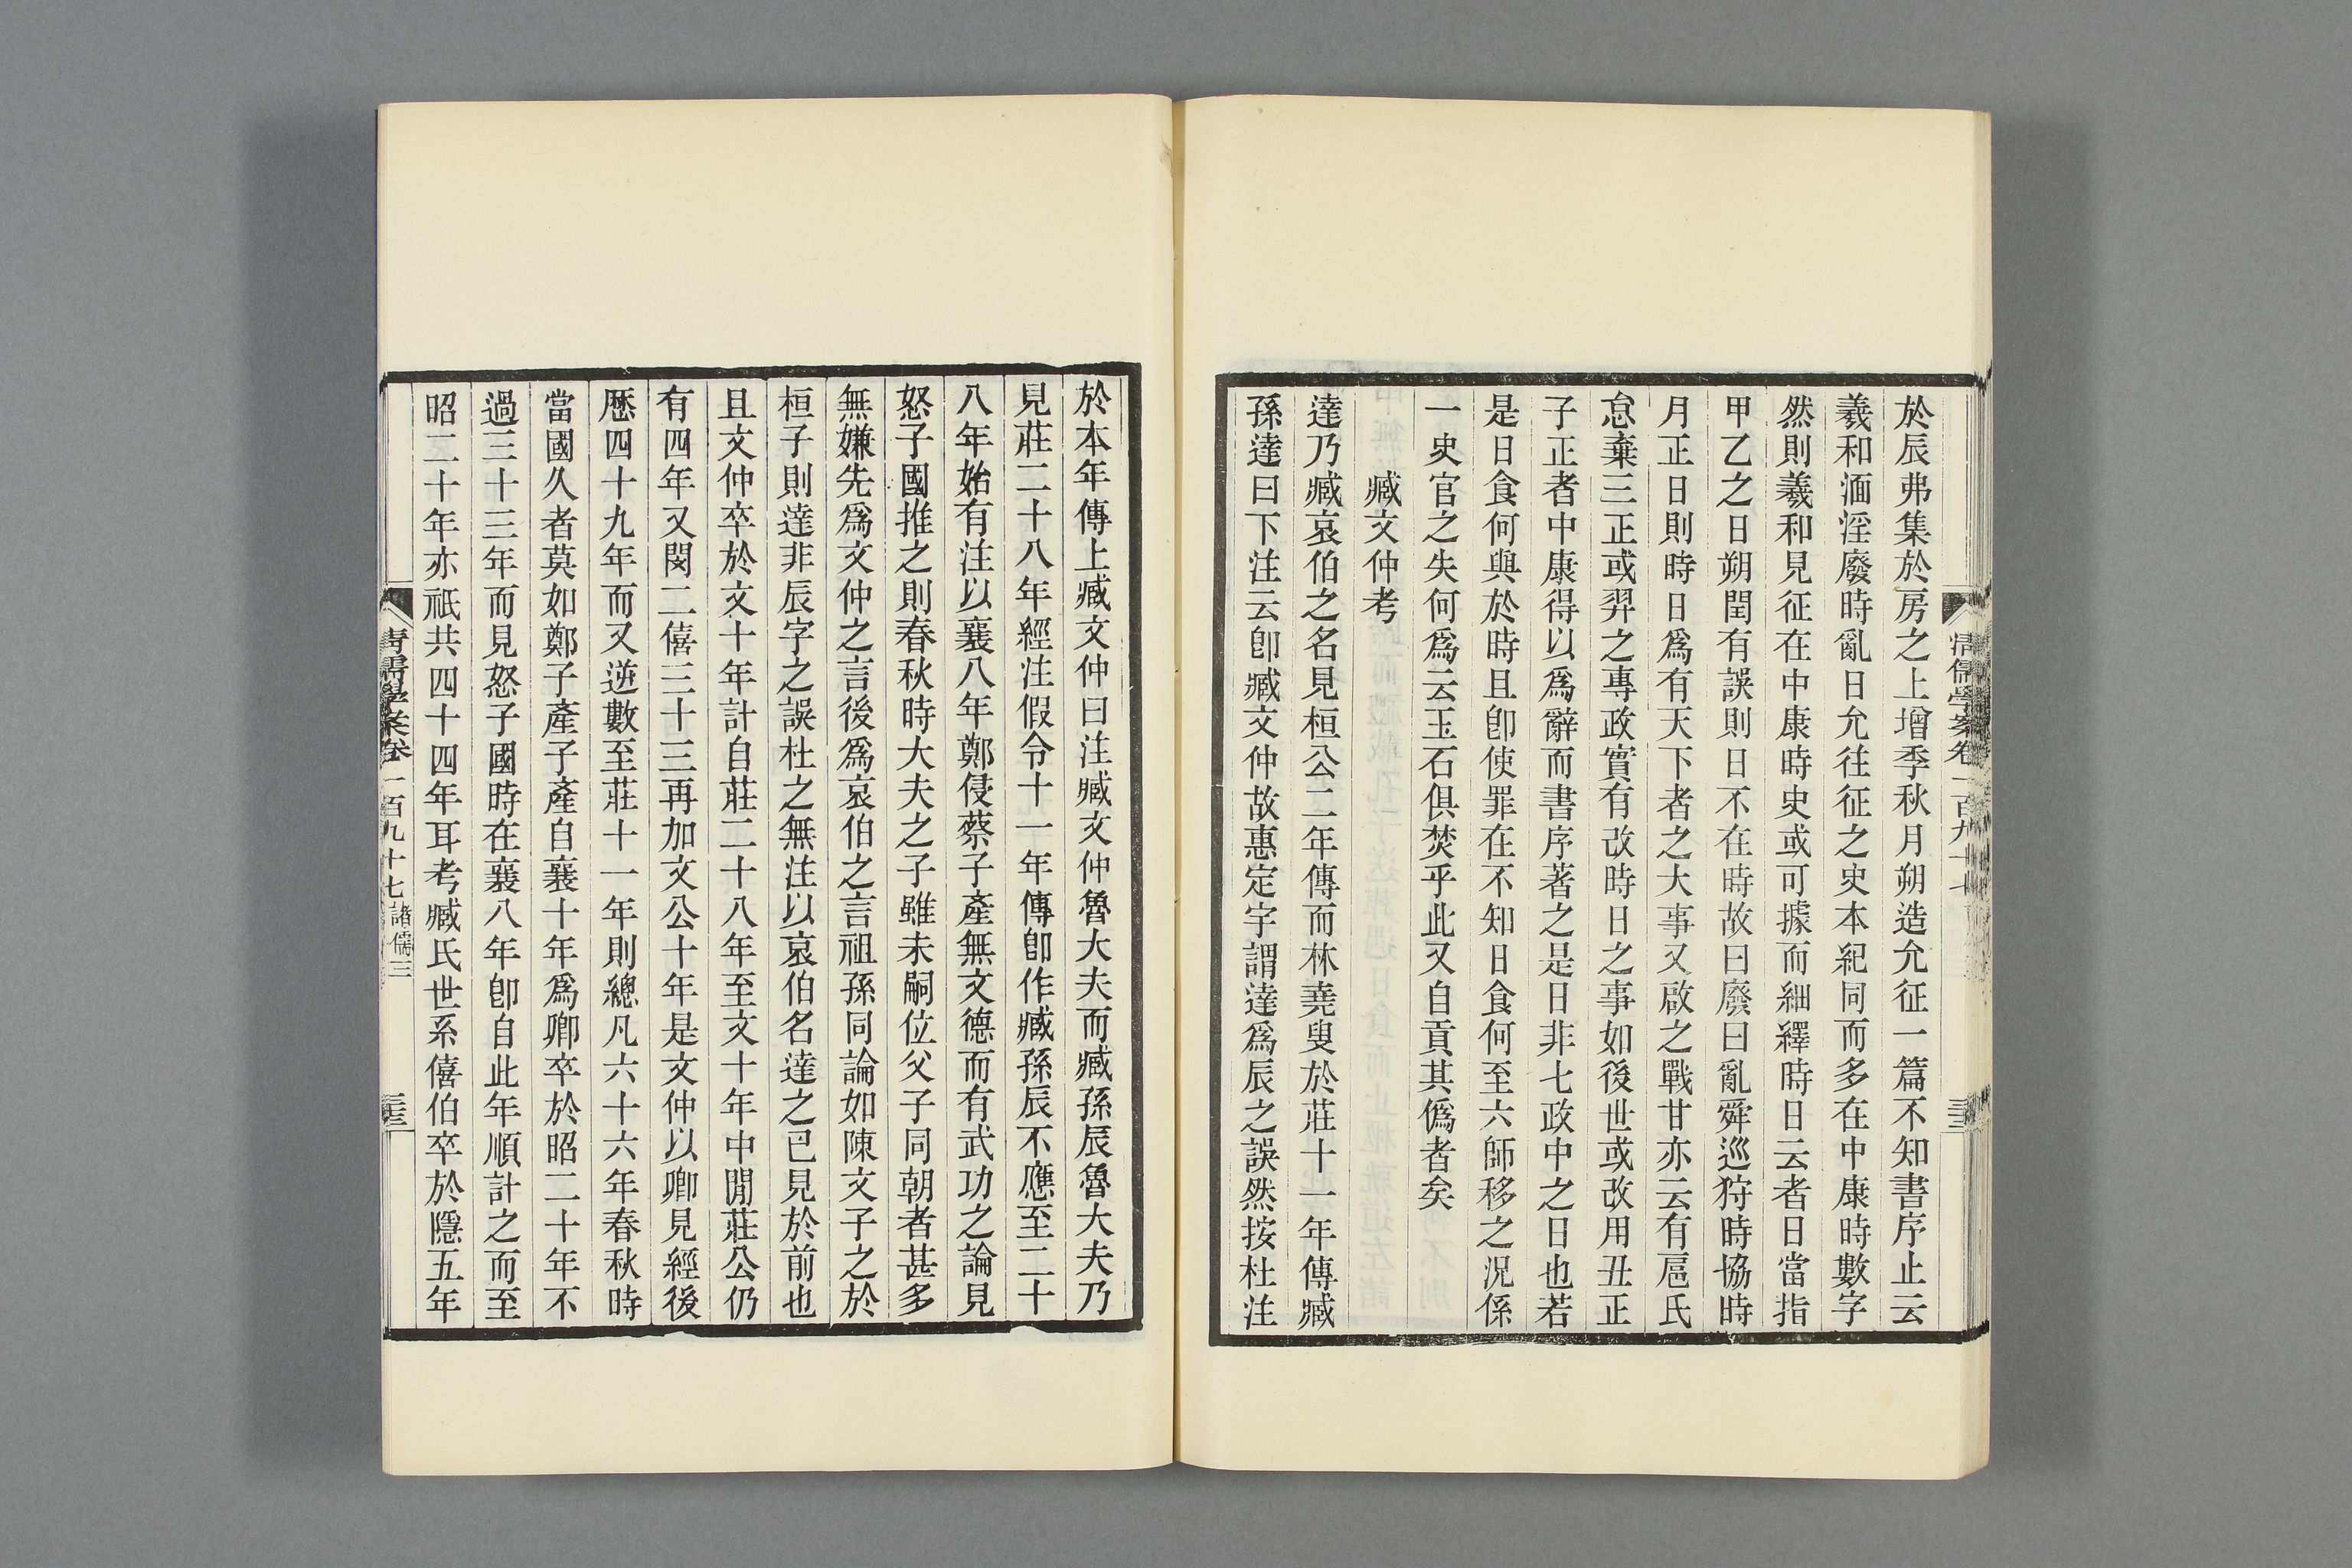 於辰弗集於房之上增季秋月朔造允征一篇不知書序止云
羲和湎淫廢時亂日允往征之史本紀同而多在中康時數字
然則羲和見征在中康時史或可據而細繹時日云者日當指
甲乙之日朔閏有誤則日不在時故曰廢曰亂舜巡狩時協時
月正日則時日爲有天下者之大事又啟之戰甘亦云有扈氏
怠棄三正或羿之專政實有改時日之事如後世或改用丑正
子正者中康得以爲辭而書序著之是日非七政中之日也若
是日食何與於時且卽使罪在不知日食何至六師移之況係
一史官之失何爲云玉石俱焚乎此又自貢其僞者矣
臧文仲考
達乃臧哀伯之名見桓公二年傳而林堯叟於莊十一年傳臧
孫達曰下注云卽臧文仲故惠定宇謂達爲辰之誤然按杜注
於本年傳上臧文仲曰注臧文仲魯大夫而臧孫辰魯大夫乃
見莊二十八年經注假令十一年傳卽作臧孫辰不應至二十
八年始有注以襄八年鄭侵蔡子產無文德而有武功之論見
怒子國推之則春秋時大夫之子雖未嗣位父子同朝者甚多
無嫌先爲文仲之言後爲哀伯之言祖孫同論如陳文子之於
桓子則達非辰字之誤杜之無注以哀伯名達之已見於前也
且文仲卒於文十年計自莊二十八年至文十年中閒莊公仍
有四年又閔二僖三十三再加文公十年是文仲以卿見經後
歷四十九年而又逆數至莊十一年則總凡六十六年春秋時
當國久者莫如鄭子產子產自襄十年爲卿卒於昭二十年不
過三十三年而見怒子國時在襄八年卽自此年順計之而至
昭二十年亦祇共四十四年耳考臧氏世系僖伯卒於隱五年
清儒學案卷一百九十七 諸儒三